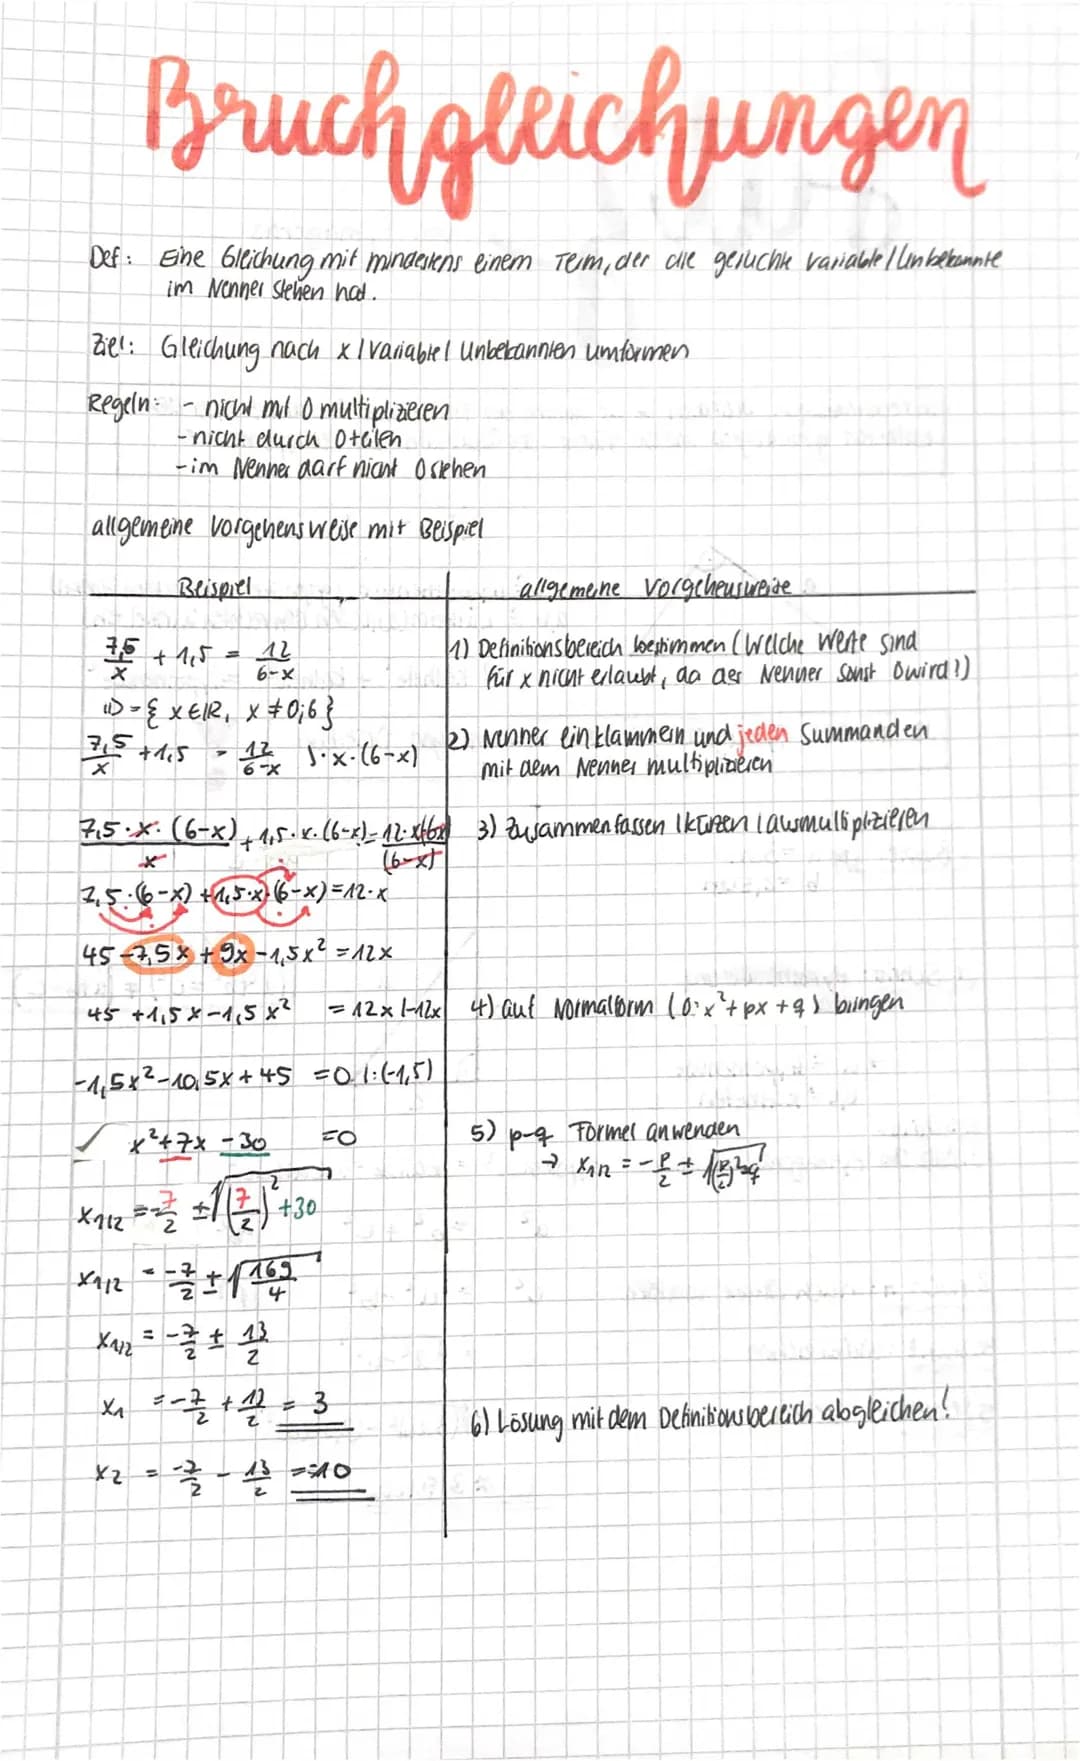 Bruchgleichungen
Def: Eine Gleichung mit mindestens einem Term, der die gesuchte Variable / Unbekannte
im Nenner stehen hat.
Ziel: Gleichung nach x / Variable / Unbekannten umformen
Regeln: - nicht mit 0 multiplizieren
- nicht durch 0 teilen
- im Nenner darf nicht 0 stehen
allgemeine Vorgehensweise mit Beispiel
Beispiel
allgemeine Vorgehensweise
7,5/x + 1,5 = 12/(6-x)
1) Definitionsbereich bestimmen (Welche Werte sind
für x nicht erlaubt, da der Nenner sonst 0 wird?)
D = { x ∈ R, x ≠ 0;6 }
7,5/x + 1,5 = 12/(6-x) | ·x·(6-x)
2) Nenner einklammern und jeden Summanden
mit dem Nenner multiplizieren
7,5·x·(6-x)/x + 1,5·x·(6-x) = 12·x(6-x)/(6-x)
3) Zusammenfassen / kürzen / ausmultiplizieren
7,5·(6-x) + 1,5·x·(6-x) = 12·x
45 - 7,5x + 9x - 1,5x² = 12x
45 + 1,5x - 1,5x² = 12x |-12x
4) auf Normalform (0=x²+px+q) bringen
-1,5x² - 10,5x + 45 = 0 |:(-1,5)
x² + 7x - 30 = 0
5) p-q Formel anwenden
→ x1/2 = -p/2 ± √((p/2)²-q)
x1/2 = -7/2 ± √((7/2)² + 30)
x1/2 = -7/2 ± √(169/4)
x1/2 = -7/2 ± 13/2
x1 = -7/2 + 13/2 = 3
6) Lösung mit dem Definitionsbereich abgleichen!
x2 = -7/2 - 13/2 = -10